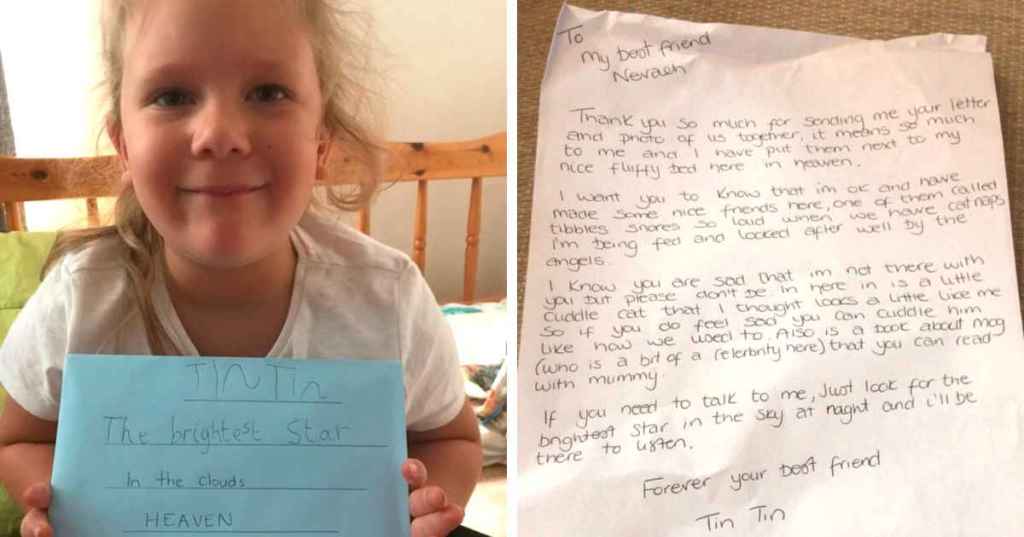 TIN Tin
The brightest Star
In the clouds
HEAVEN
To
My best friend
Nevaeh
Thank you so much for sending me your letter
and photo of us together, it means so much
to me and I have put them next to my
nice fluffy bed here in heaven.
I want you to know that im ok and have
made some nice friends here, one of them called
tibbles snores so loud when we have catnaps
I'm being fed and looked after well by the
angels.
I know you are sad that im not there with
you but please don't be in here in is a little
cuddle cat that I thought looks a little like me
so if you do feel sad you can cuddle him
like how we used to. Also is a book about mog
(who is a bit of a celerbrity here) that you can read
with mummy.
If you need to talk to me, Just look for the
brightest star in the sky at naght and i'll be
there to listen.
Forever your best friend
Tin Tin